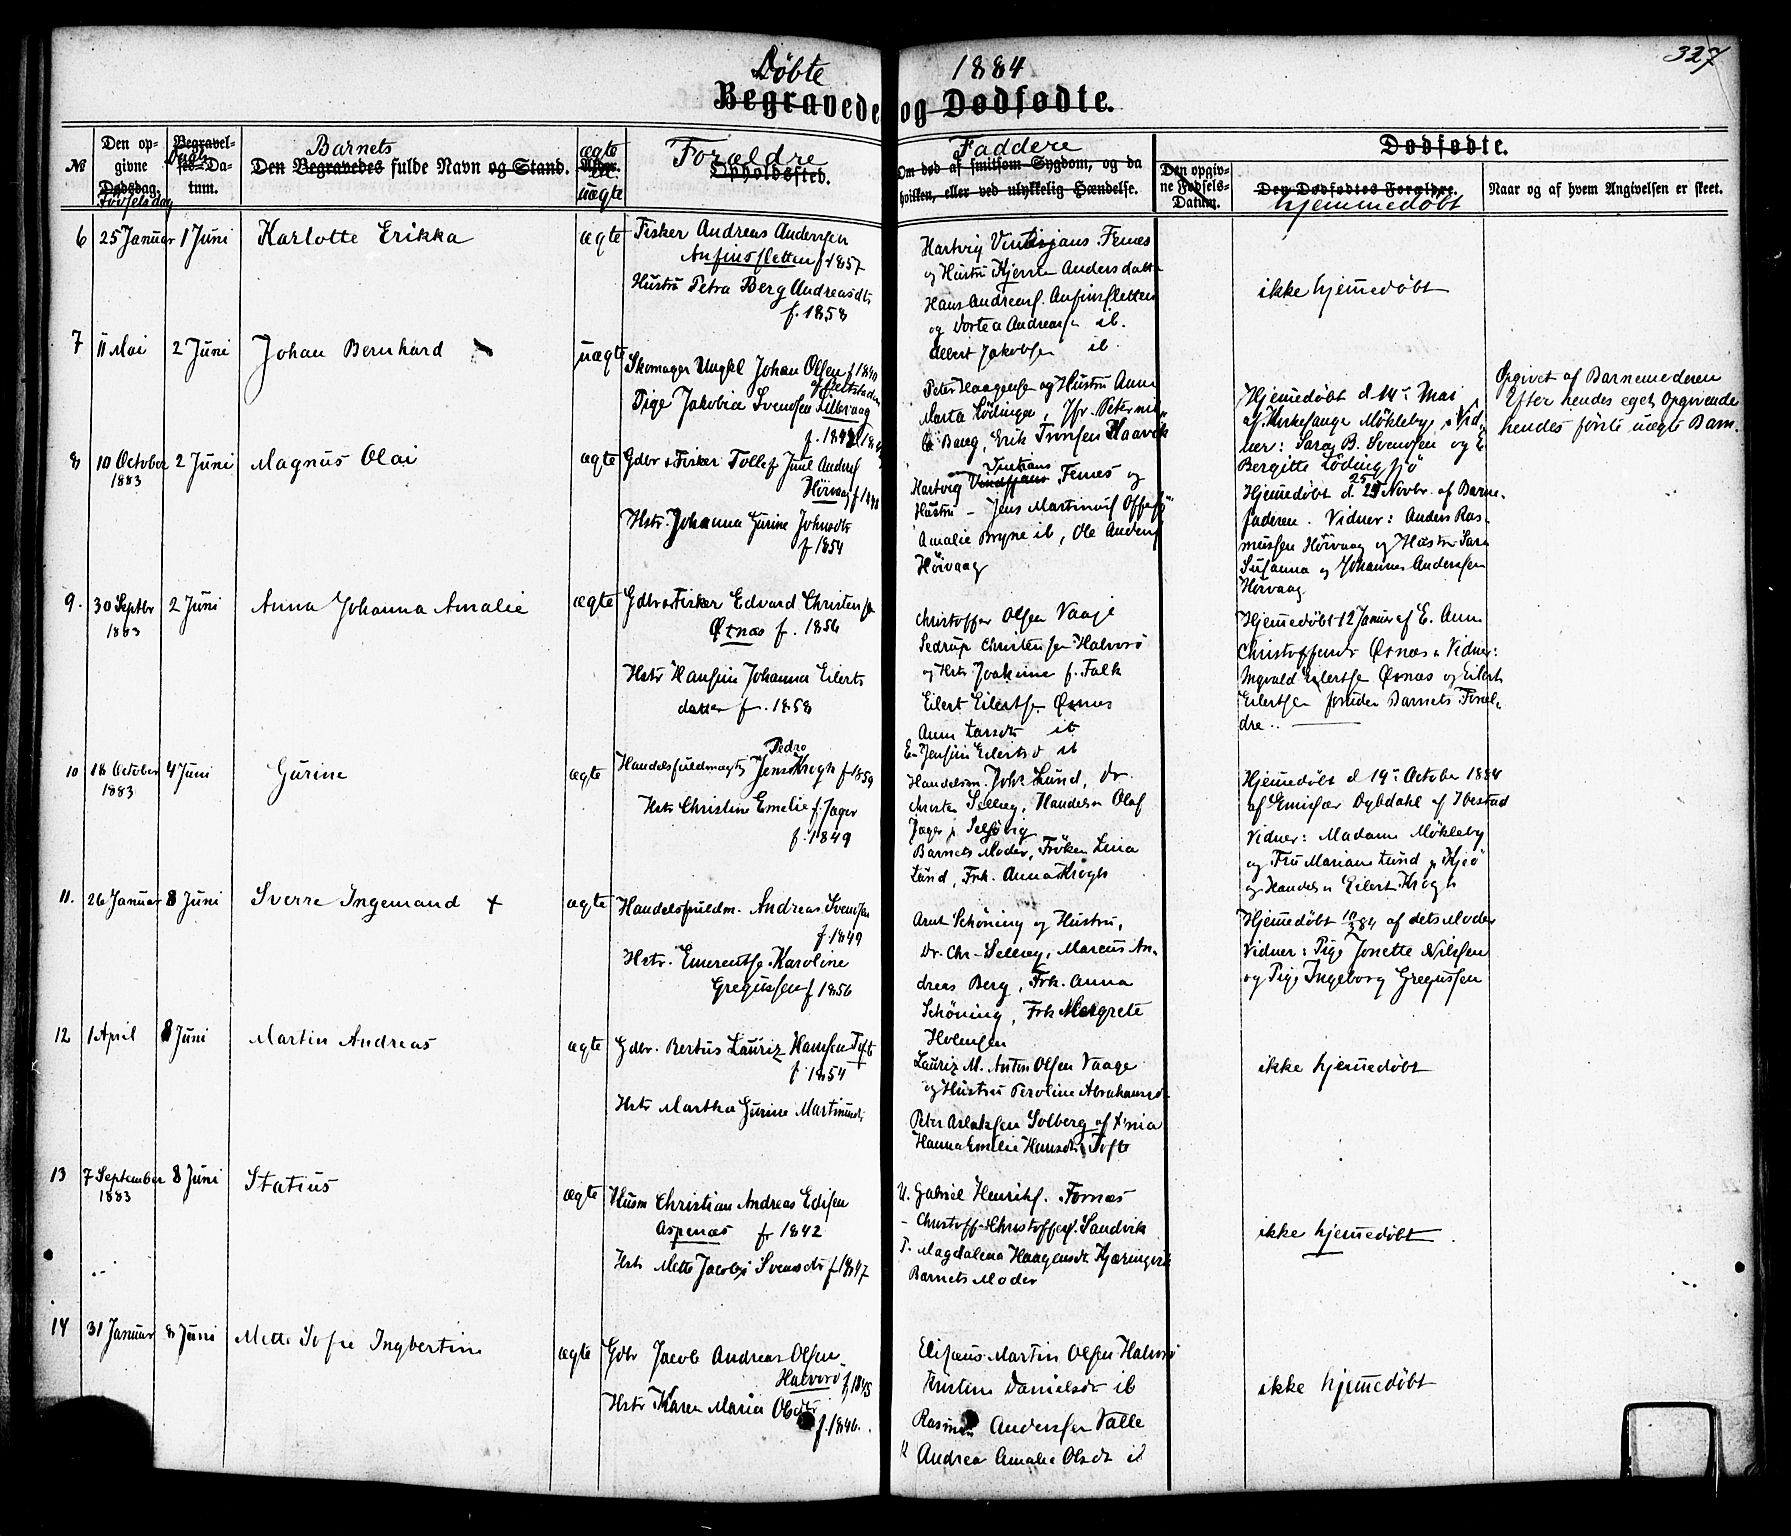 Döbte 1884
327
Begravede og Dødfødte.
№
Den opgivne Dødsdag.
Fødselsdag
Begravelses-Datum.
Daabs
Barnets
Den Begravedes fulde Navn og Stand.
ægte
uægte
Forældre
Opholdssted.
Faddere
Om død af smitsom Sygdom, og da
hvilken, eller ved ulykkelig Hændelse.
Dødfødte.
Den opgivne Fødsels-Datum.
Den Dødfødtes Forældre.
hjemmedöbt
Naar og af hvem Angivelsen er skeet.
6 25 Januar 1 Juni Karlotte Erikka ægte
Fisker Andreas Anderssen
Anfinsletten f. 1857
Hustru Petra Berg Andreasdtr
f. 1858
Hartvig Fenes
og Hustru Kjersten Andersdatter
Hans Andreas. Anfinsletten
og Dortea Andreas ib.
Albert Jakobsen ib.
ikke hjemedöbt
7 11 Mai 2 Juni Johan Bernhard uægte
Skomager Ungkl Johan Olsen f 1840
Pige Jakobia Svendsen Lillevaag
f. 1842
Peter Haagense og Hustru Anne
Marta Lödingen, Jfr. Petermi
Bang, Erik Tronsen Haavik
Hjemedöbt d 14de Mai
af Kirkesange Mökleby, Vid
ner: Sara B. Svendsen og E
Bergitte Lödingsjö
Opgivet af Barnemoderen
Efter hendes eget Opgivende
hendes förste uægte Barn.
8 10 October 1883 2 Juni Magnus Olai ægte
Gdbr & Fisker Tollef Juul Anders
Hörvaag
Hstr. Johanna Gurine Johnsdtr
f 1854
Hartvig Fenes og
Hustru - Jens Martinus
Amalie Bryne ib, Ole Anders
Hörvaag
Hjemedöbt d. 25 Novbr. af Barne
faderen. Vidner: Anders Ras-
mussen Hörvaag og Hustru Sara
Susanna og Johannes Anderssen
Hörvaag
9. 30 Septbr 1883 2 Juni Anna Johanna Amalie ægte
Gdbr & Fisker Edvard Christensen
Örnæs f. 1856
Hstr Hansine Johanna Eilerts
datter f. 1858
Christoffer Olsen Vaaje
Sedrup Christensen Halvorö
og Hstr Joakime f. Falk
Eilert Eilertsen Örnæs
Anne Larsdtr ib
E. Jensine Eilertsd ib
Hjemedöbt 12 Januar af E. Anne
Christoffersdtr Örnæs. Vidner:
Ingvald Eilertse Örnæs og Eilert
Eilertsen foruden Barnets Foræl-
dre.
10 18 October 1883 4 Juni Gurine ægte
Pedro
Handelsfuldmægtg Jens Krogh f 1859
Hstr Christine Emelie f. Jager
f. 1849
Handelsm. Johs Lund, Dr.
Christen Selleeg, Handelsm Olaf
Jager
Barnets Moder, Fröken Lina
Lund, Frk. Anna Krogh
Hjemedöbt d 19de October 1884
af Emisær Dybdahl af Ibestad
Vidner: Madam Mökleby
og Fru Mariane Lund
og Handelsm Eilert Krogh
11. 26 Januar 8 Juni Sverre Ingemand + ægte
Handelsfuldm. Andreas Svensen
f. 1849
Hstr. Emerentse Karoline
Gregussen f 1856
Arnt Schöning og Hustru,
Dr. Chr. Selleeg, Marcus An-
dreas Berg, Frk. Anna
Schöning, Frk Margrete
Holmsen
Hjemedöbt 10/3 84 af dets Moder
Vidner: Pige Jonette Nilssen
og Pige Ingeborg Gregussen
12 1 April 8 Juni Martin Andreas ægte
Gdbr. Bertus Lauriz Hansen Toft
f 1854
Hstr Martha Gurine Martinusdtr
Lauriz M. Anton Olsen Vaage
og Hustru Peroline Abrahamsdtr
Peter Aslaksen Solberg af
Hanna Emelie Hansdtr Tofte
ikke hjemedöbt
13 7 September 1883 8 Juni Statius ægte
Husm Christian Andreas Edisen
Aspenæs f 1842
Hstr Mette Jacobs Svensdtr f 1847
U. Gabriel Henriks. Fornæs
- Christoff. Christoffers. Sandvik
P. Magdalena Haagensdt Kjæringvik
Barnets Moder
ikke hjemedöbt
14 31 Januar 8 Juni Mette Sofie Ingbertine ægte
Gdbr Jacob Andreas Olsen
Halvorö f. 1845
Hstr Karen Maria Olsdtr
f. 1846.
Elisæus Martin Olsen Halvorö
Kristine Danielsdt ib
Rasmus Anderssen Valle
Andrea Amalie Olsdt ib
ikke hjemedöbt